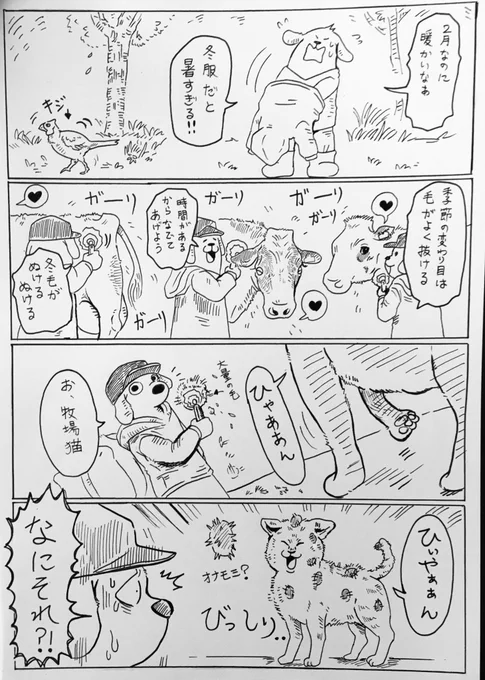 2月なのに
暖かいなぁ
冬服だと
暑すぎる!!
キジ
季節の変わり目は
毛がよく抜ける
ガーリ
ガーリ
ガーリ
時間がある
からなでて
あげよう
ガーリ
ガーリ
冬毛が
ぬける
ぬける
ひゃああん
大量の毛
お、牧場猫
ひぃやぁぁん
オナモミ?
びっしり..
なにそれ?!